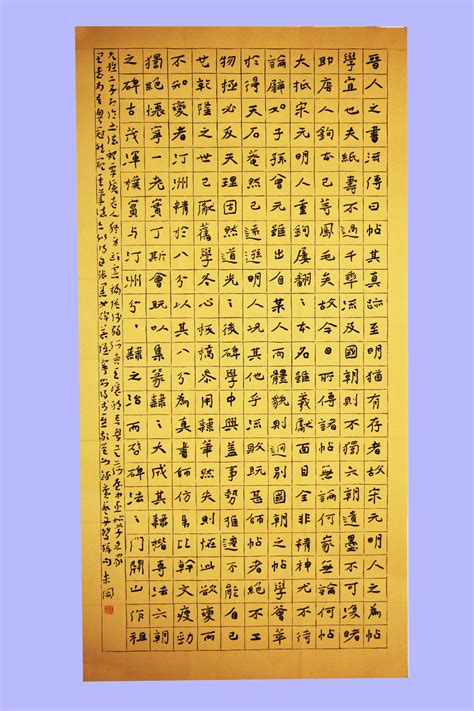 晉人之書流傳曰帖其真跡至明猶有存者故宋元明人之為帖
學宜也夫紙壽不過千年流及國朝則不獨六朝遺墨不可復睹
即唐人鉤本已等鳳毛矣故今日所傳諸帖無論何家無論何帖
大抵宋元明人重鉤屢翻之本名雖羲獻面目全非精神尤不待
論譬如子孫曾元雖出自某人而體貌則迥別國朝之帖學薈萃
於得天石菴然已遠遜明人況其他乎流敗既甚師帖者絕不工
物極必反天理固然道光之後碑學中興蓋事勢推遷不能自已
也乾隆之世已厭舊學冬心板橋參用隸筆然失則怪此欲變而
不知變者汀洲精於八分以其八分為真書師仿弔比幹文瘦勁
獨絕懷寧一老實丁斯會既以集篆隸之大成其隸楷專法六朝
之碑古茂渾樸實與汀洲分分隸之治而啓碑法之門開山作祖